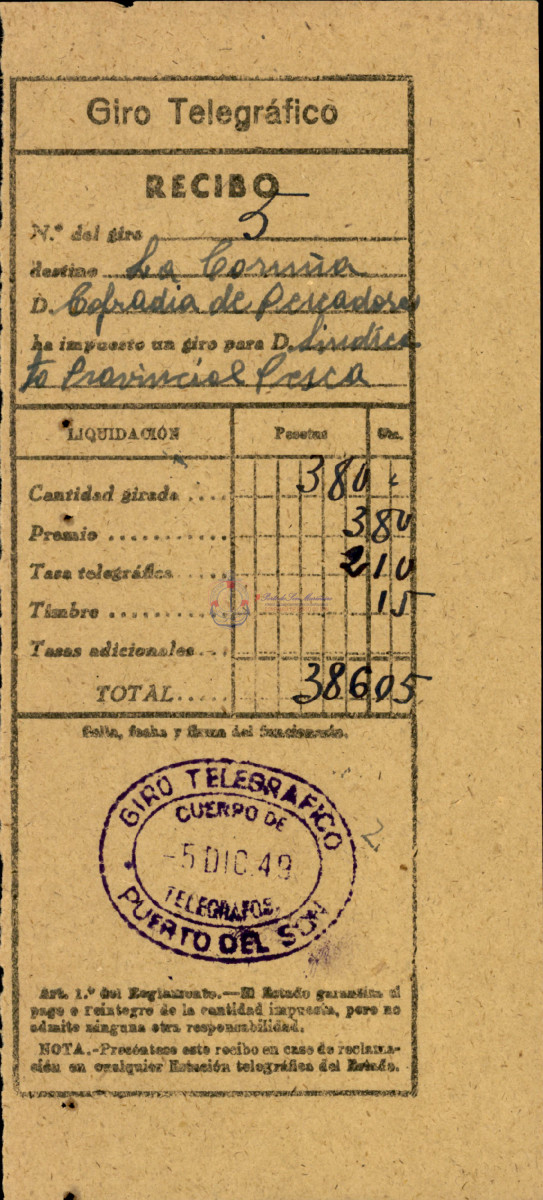 Giro Telegráfico
RECIBO
N.º del giro 5
destino La Coruña
D. Cofradia de Pescadores
ha impuesto un giro para D. Sindica
to Provincial Pesca
LIQUIDACIÓN Pesetas Cts.
Cantidad girada .... 380
Premio ........... 3 80
Tasa telegráfica ..... 2 10
Timbre ........... 15
Tasas adicionales ...
TOTAL ..... 386 05
Sello, fecha y firma del funcionario.
GIRO TELEGRAFICO
CUERPO DE
-5 DIC. 49
TELEGRAFOS.
PUERTO DEL SON
2
Art. 1.º del Reglamento.—El Estado garantiza el
pago o reintegro de la cantidad impuesta, pero no
admite ninguna otra responsabilidad.
NOTA.-Preséntese este recibo en caso de reclama-
ción en cualquier Estación telegráfica del Estado.